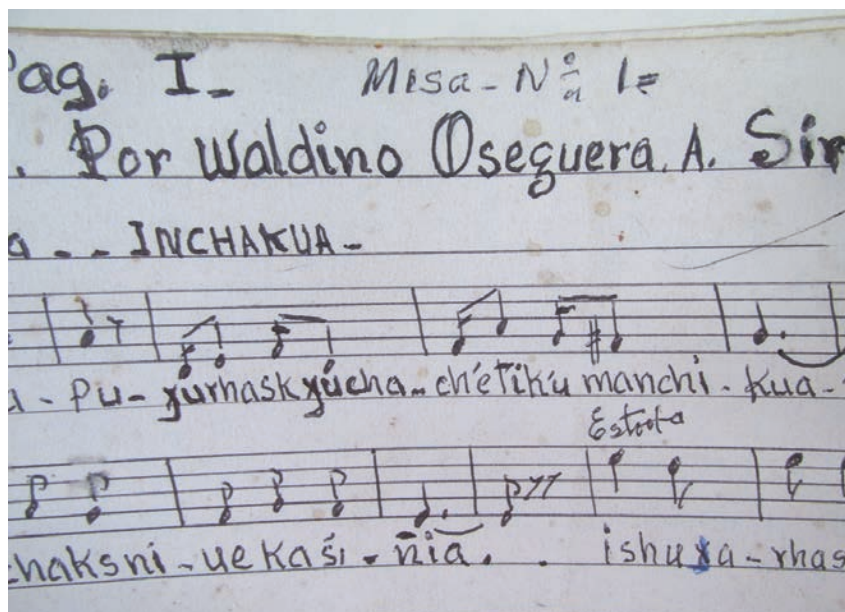 Pag. I_ Misa - Nº 1=
. Por Waldino Oseguera. A. Sir
a - - INCHAKUA -
a - Pu - xurhaskxúcha - ch'etik'u manchi - kua -
Estrofa
haksni - ue kaśi - ñia. . ishuxa - rhas